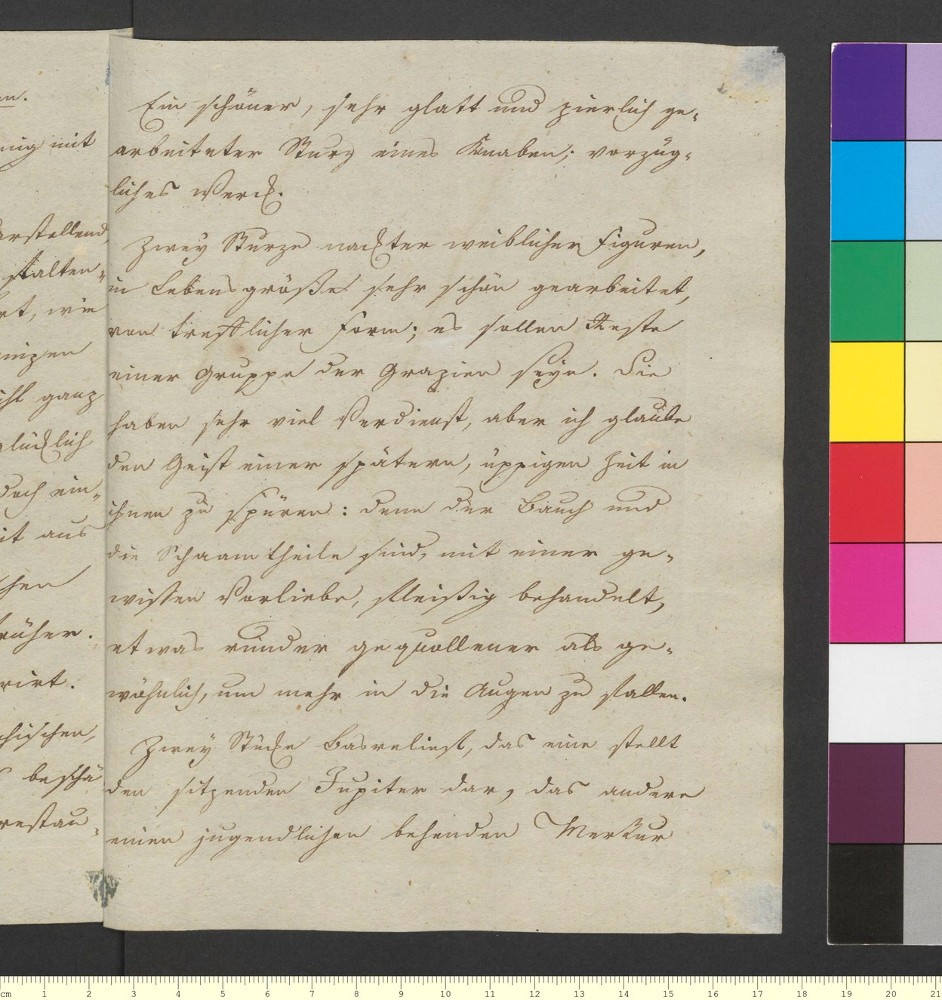 en.
nig mit
arstellend,
stalten-
rt, wie
inzen
ihl ganz
glücklich
doch ein-
it aus
chen
früher.
rirt.
chischen,
beschä
restau-
Ein schöner, sehr glatt und zierlich ge-
arbeiteter Sturz eines Knaben; vorzüg-
liches Werck.
Zwey Sturze nackter weiblicher Figuren,
in Lebensgröße sehr schön gearbeitet,
von trefflicher Form; es sollen Reste
einer Gruppe der Grazien seyn. Die
haben sehr viel Verdienst, aber ich glaube
den Geist einer spätern, üppigen Zeit in
ihnen zu spüren: denn der Bauch und
die Schaamtheile sind, mit einer ge-
wissen Vorliebe, fleißig behandelt,
etwas runder gequollener als ge-
wöhnlich, um mehr in die Augen zu fallen.
Zwey Stücke Basrelief, das eine stellt
den sitzenden Jupiter dar, das andere
einen jugendlichen behenden Merkur
cm 1 2 3 4 5 6 7 8 9 10 11 12 13 14 15 16 17 18 19 20 21